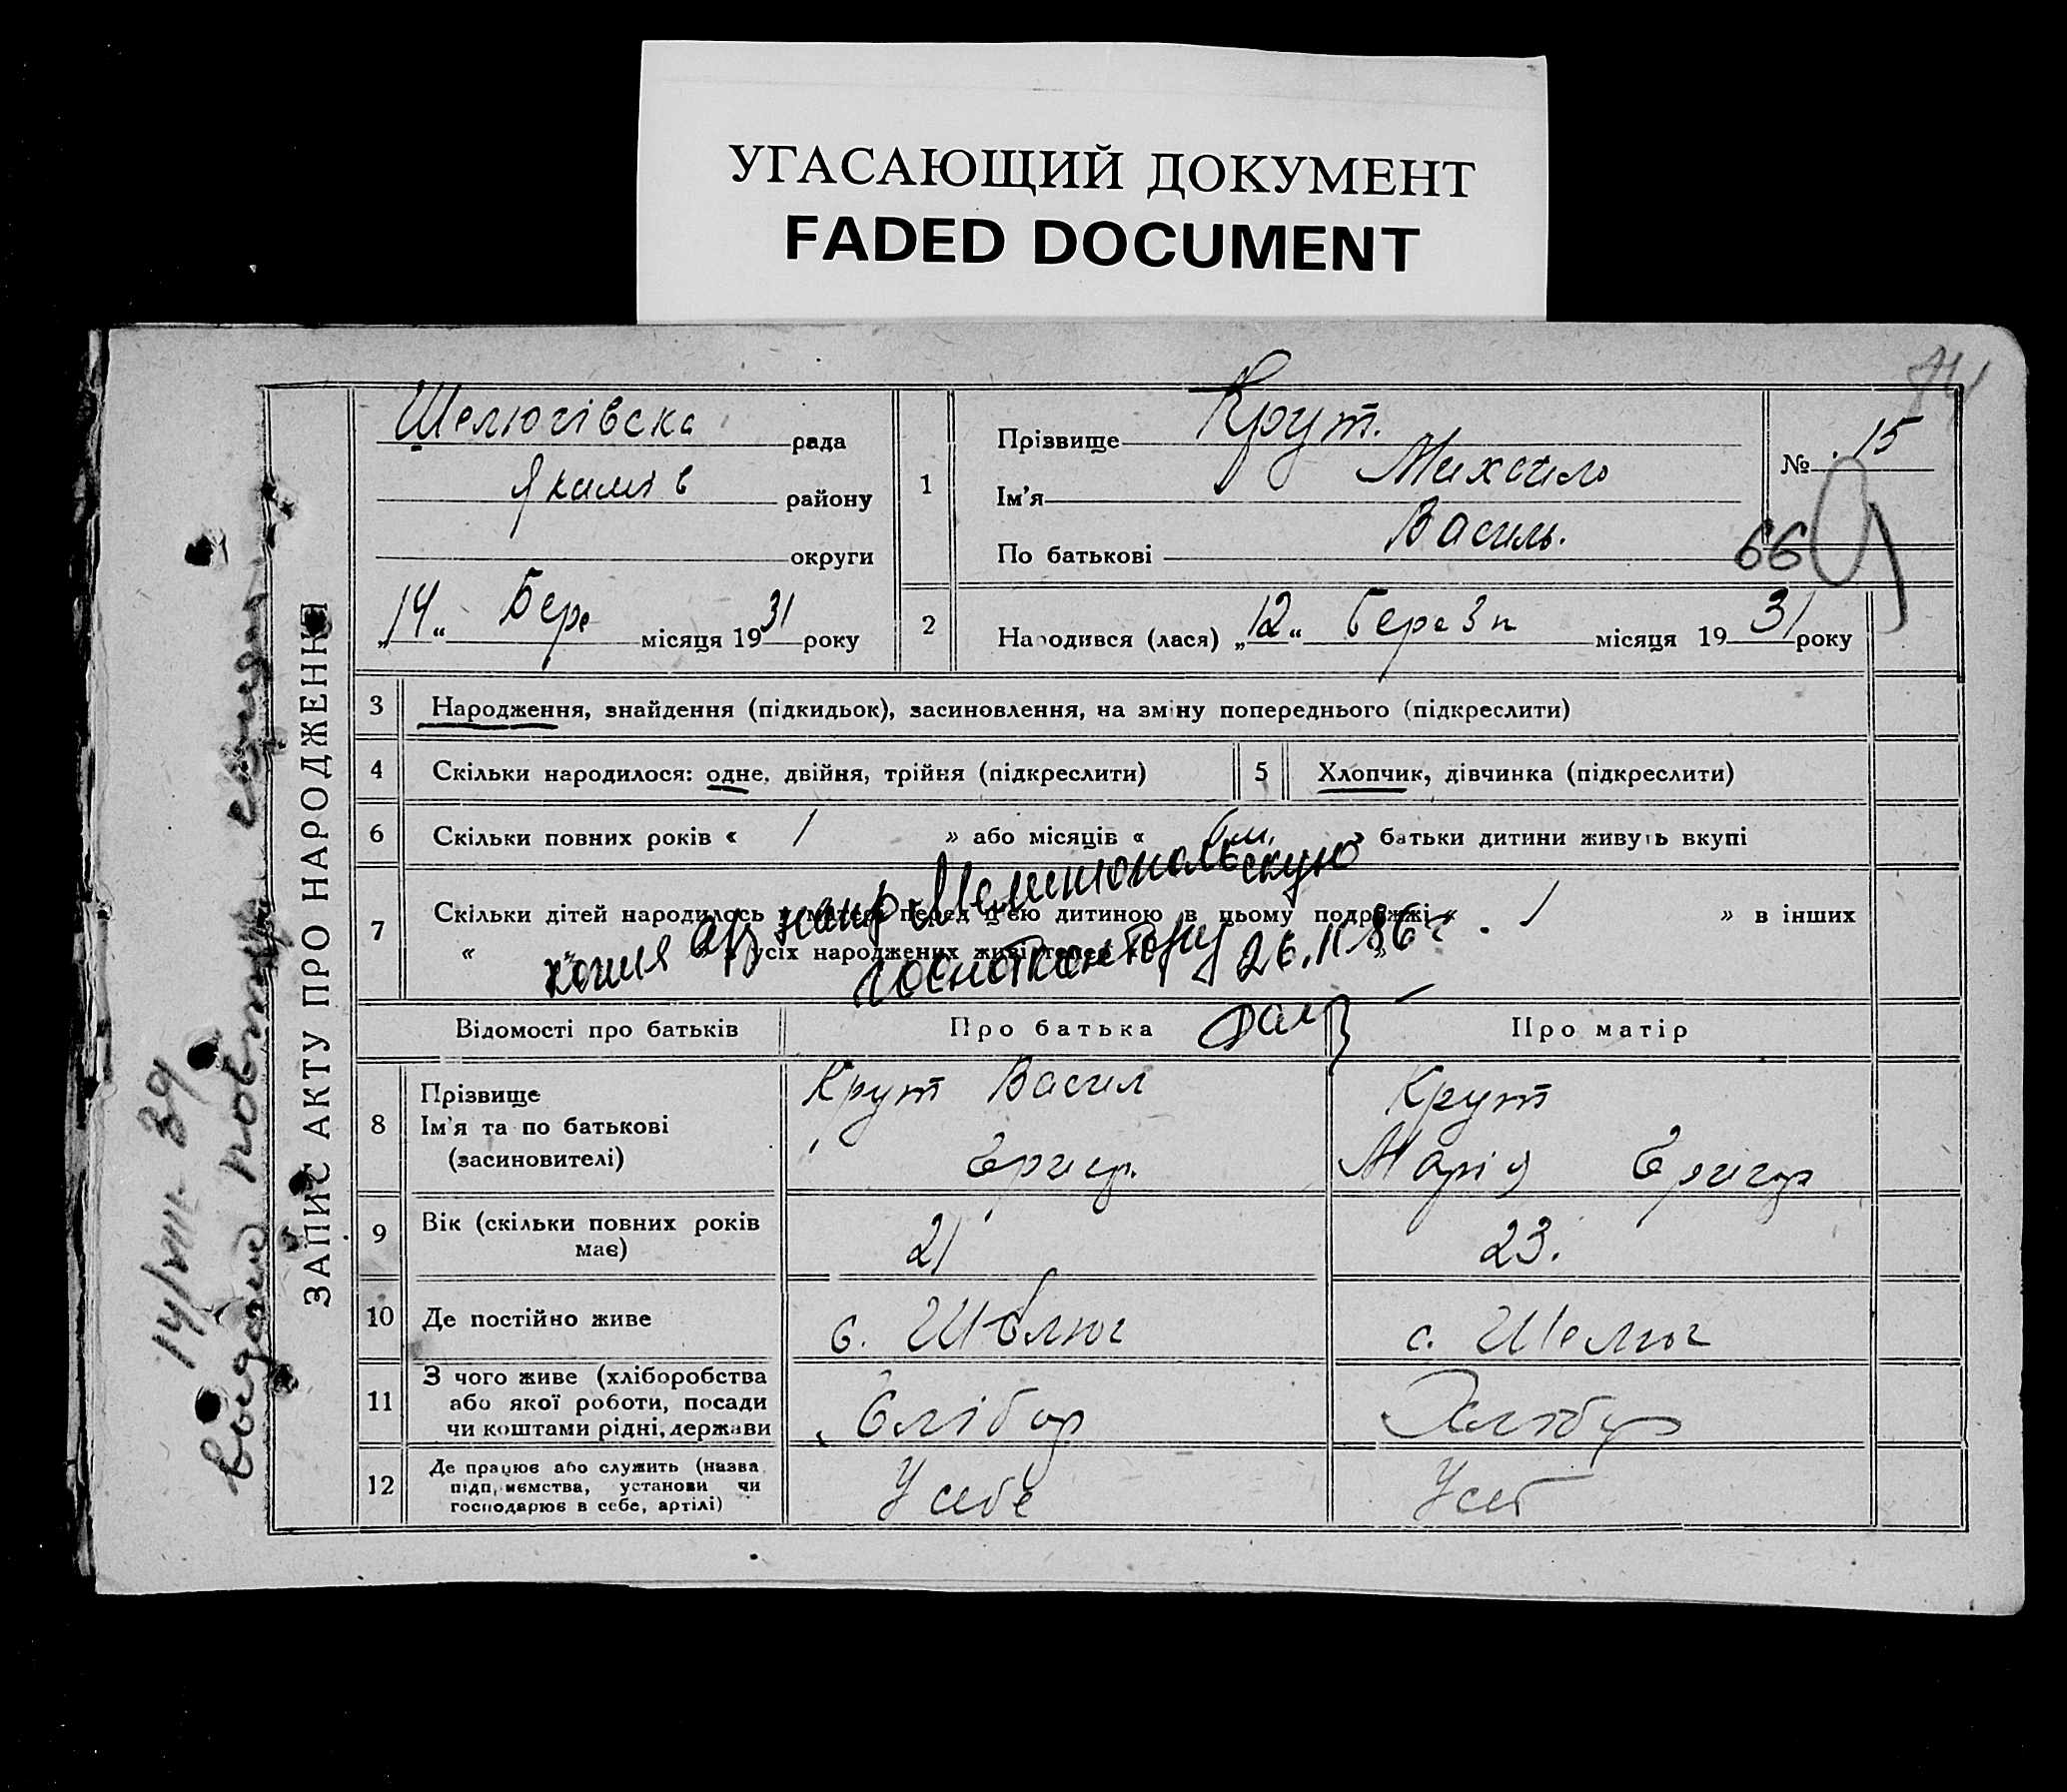 УГАСАЮЩИЙ ДОКУМЕНТ
FADED DOCUMENT
ЗАПИС АКТУ ПРО НАРОДЖЕННЯ
Шелюгівска рада
Якимів району
округи
„14“ Бере місяця 1931 року
1
Прізвище Крут.
Ім'я Михайло
По батькові Василь.
№ 15
66
2
Народився (лася) „12“ березн місяця 1931 року
3 Народження, знайдення (підкидьок), засиновлення, на зміну попереднього (підкреслити)
4 Скільки народилося: одне, двійня, трійня (підкреслити)
5 Хлопчик, дівчинка (підкреслити)
6 Скільки повних років « 1 » або місяців « 6 м. » батьки дитини живуть вкупі
7 Скільки дітей народилось у матері перед цією дитиною в цьому подружжі « 1 » в інших
« усіх народжених живі тепер
копия а/з напр. Мелитопольскую
госнотконтору 26.11.86 г.
Відомості про батьків Про батька Про матір
8 Прізвище
Ім'я та по батькові
(засиновителі)
Крут Васил
Григ.
Крут
Марія Григор
9 Вік (скільки повних років
має)
21
23.
10 Де постійно живе
с. Шелюг
с. Шелюг
11 З чого живе (хліборобства
або якої роботи, посади
чи коштами рідні, держави
Хлібор
Хлібор
12 Де працює або служить (назва
підприємства, установи чи
господарює в себе, артілі)
У себе
У себ
14/VIII-39
выдано повтор